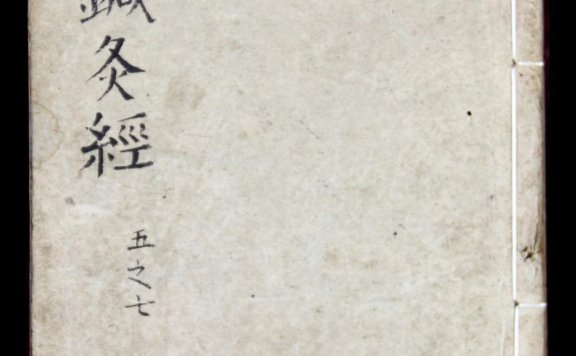 鍼灸經
五之七